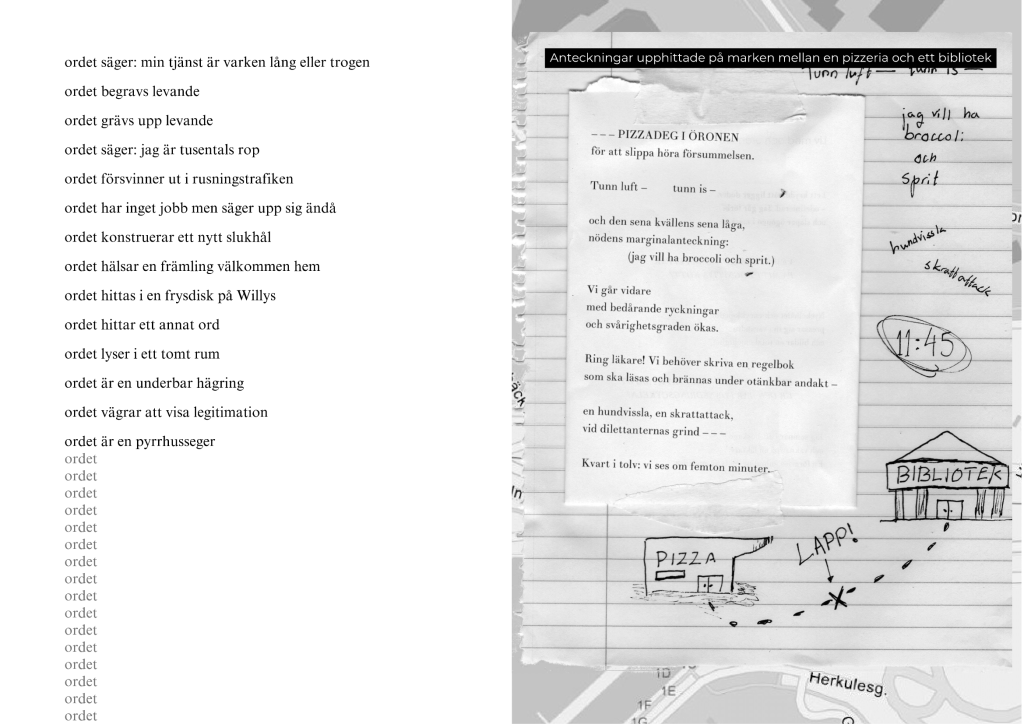 ordet säger: min tjänst är varken lång eller trogen
ordet begravs levande
ordet grävs upp levande
ordet säger: jag är tusentals rop
ordet försvinner ut i rusningstrafiken
ordet har inget jobb men säger upp sig ändå
ordet konstruerar ett nytt slukhål
ordet hälsar en främling välkommen hem
ordet hittas i en frysdisk på Willys
ordet hittar ett annat ord
ordet lyser i ett tomt rum
ordet är en underbar hägring
ordet vägrar att visa legitimation
ordet är en pyrrhusseger
ordet
ordet
ordet
ordet
ordet
ordet
ordet
ordet
ordet
ordet
ordet
ordet
ordet
ordet
ordet
ordet
Anteckningar upphittade på marken mellan en pizzeria och ett bibliotek
Tunn luft — tunn is —
– – – PIZZADEG I ÖRONEN
för att slippa höra försummelsen.
Tunn luft – tunn is –
och den sena kvällens sena låga,
nödens marginalanteckning:
(jag vill ha broccoli och sprit.)
Vi går vidare
med bedårande ryckningar
och svårighetsgraden ökas.
Ring läkare! Vi behöver skriva en regelbok
som ska läsas och brännas under otänkbar andakt –
en hundvissla, en skrattattack,
vid dilettanternas grind – – –
Kvart i tolv: vi ses om femton minuter.
jag vill ha
broccoli
och
sprit
hundvissla
skrattattack
11:45
BIBLIOTEK
PIZZA
LAPP!
1D
1E
1F
1G
Herkulesg.